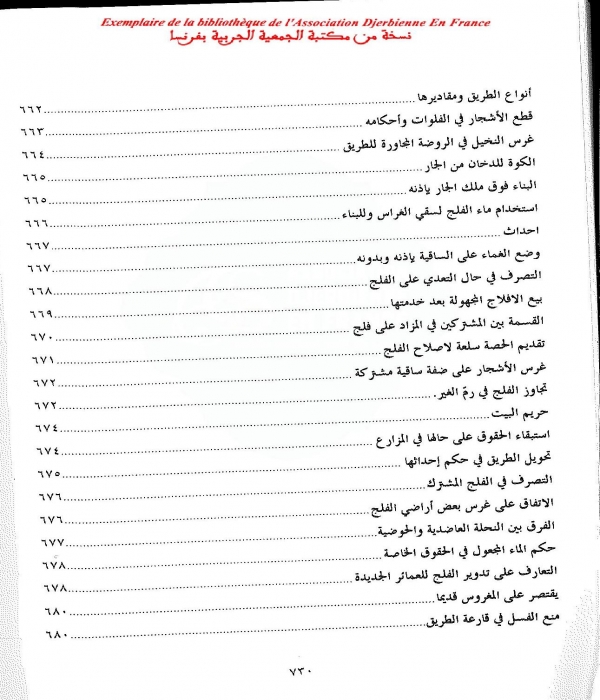 Exemplaire de la bibliothèque de l'Association Djerbienne En France
نسخة من مكتبة الجمعية الجربية بفرنسا
أنواع الطريق ومقاديرها ٦٦٢
قطع الأشجار في الفلوات وأحكامه ٦٦٣
غرس النخيل في الروضة المجاورة للطريق ٦٦٤
الكوة للدخان من الجار ٦٦٥
البناء فوق ملك الجار بإذنه ٦٦٥
استخدام ماء الفلج لسقي الغراس وللبناء ٦٦٦
احداث ٦٦٧
وضع الغماء على الساقية بإذنه وبدونه ٦٦٧
التصرف في حال التعدي على الفلج ٦٦٨
بيع الافلاج المجهولة بعد خدمتها ٦٦٩
القسمة بين المشتركين في المزاد على فلج ٦٧٠
تقديم الحصة سلعة لاصلاح الفلج ٦٧١
غرس الأشجار على ضفة ساقية مشتركة ٦٧٢
تجاوز الفلج في رمّ الغير. ٦٧٢
حريم البيت ٦٧٤
استبقاء الحقوق على حالها في المزارع ٦٧٤
تحويل الطريق في حكم إحداثها ٦٧٥
التصرف في الفلج المشترك ٦٧٦
الاتفاق على غرس بعض أراضي الفلج ٦٧٦
الفرق بين النحلة العاضدية والحوضية ٦٧٧
حكم الماء المجعول في الحقوق الخاصة ٦٧٨
التعارف على تدوير الفلج للعمائر الجديدة ٦٧٨
يقتصر على المغروس قديما ٦٨٠
منع الفسل في قارعة الطريق ٦٨٠
٧٣٠